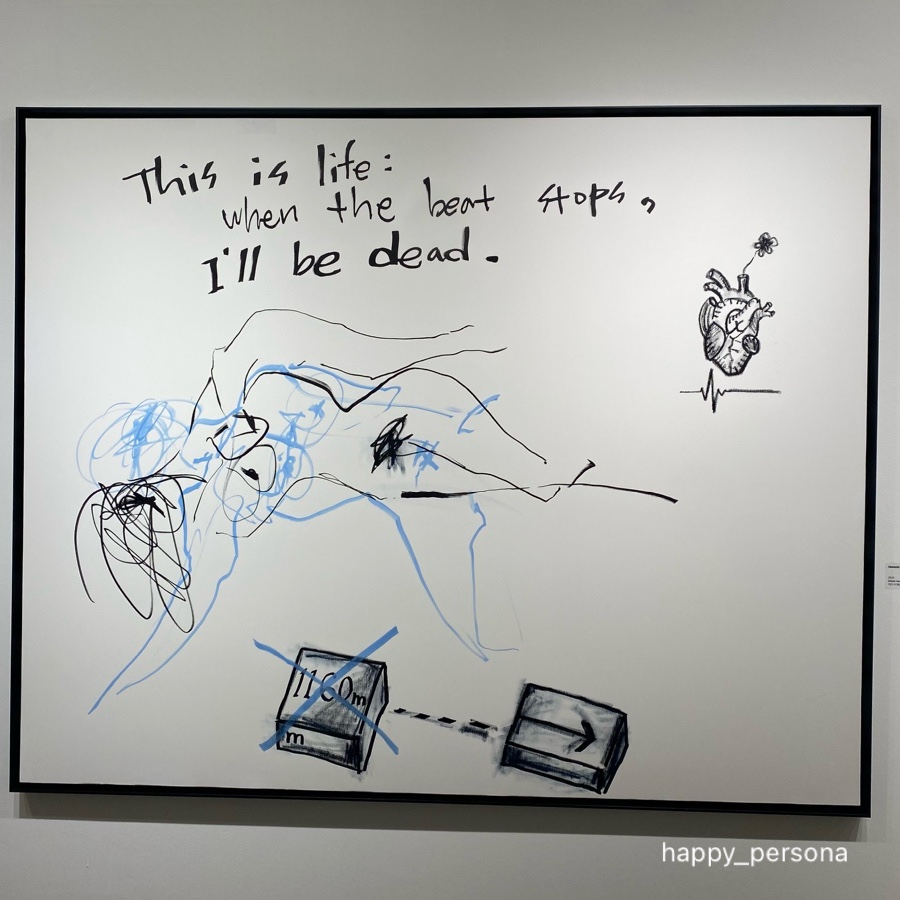 This is life:
when the beat stops,
I'll be dead.
1160m
m
happy_persona